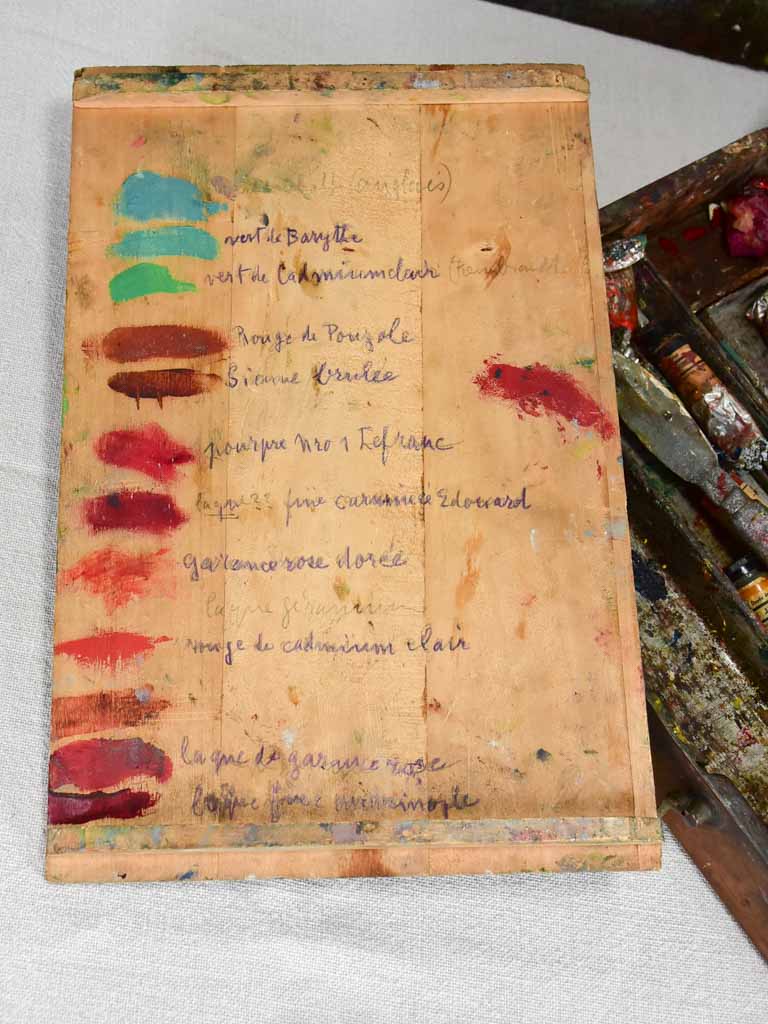 (anglais)
vert de Barythe
vert de Cadmium clair (Rembrandt
Rouge de Pouzole
Sienne brulée
pourpre nro 1 Lefranc
laque fine carminée Edouard
garance rose dorée
laque géranium
rouge de cadmium clair
laque de garance rose
laque fine